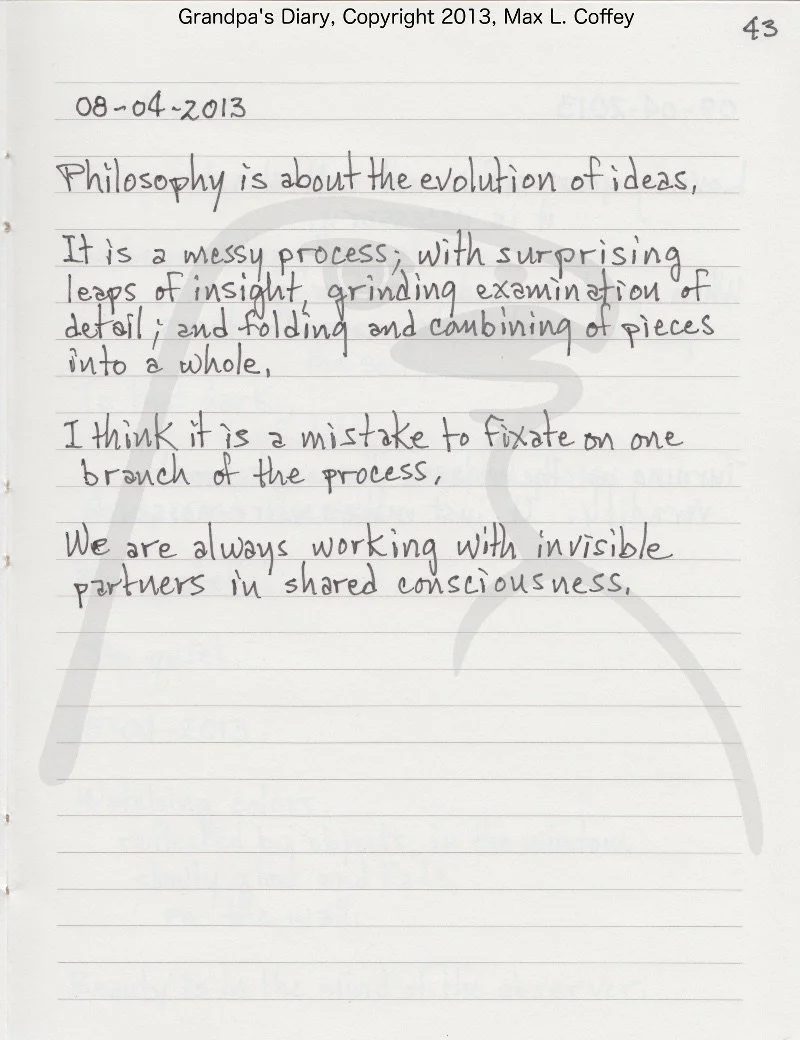 Grandpa's Diary, Copyright 2013, Max L. Coffey
43
08-04-2013
Philosophy is about the evolution of ideas.
It is a messy process; with surprising
leaps of insight, grinding examination of
detail; and folding and combining of pieces
into a whole.
I think it is a mistake to fixate on one
branch of the process.
We are always working with invisible
partners in shared consciousness.